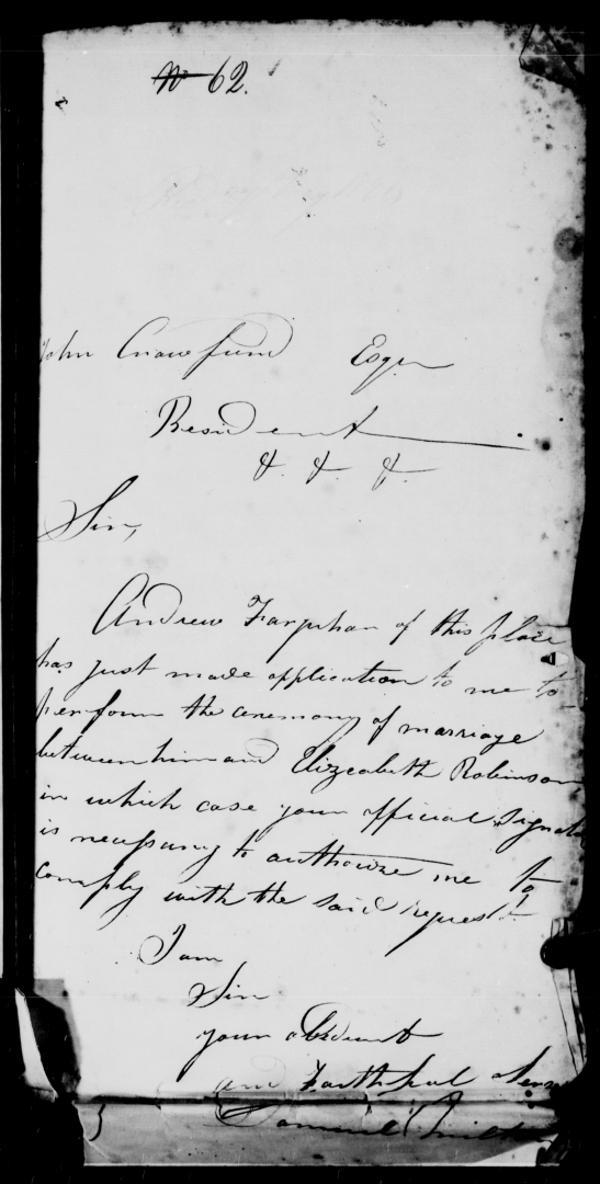 No 62.
John Crawfurd Esqr
Resident
&. &. &.
Sir,
Andrew Farquhar of this place
has just made application to me to
perform the ceremony of marriage
between him and Elizeabeth Robinson
in which case your official signat
is necessary to authorize me to
comply with the said request.
I am
Sir
your obedient
and Faithful Serv
Samuel